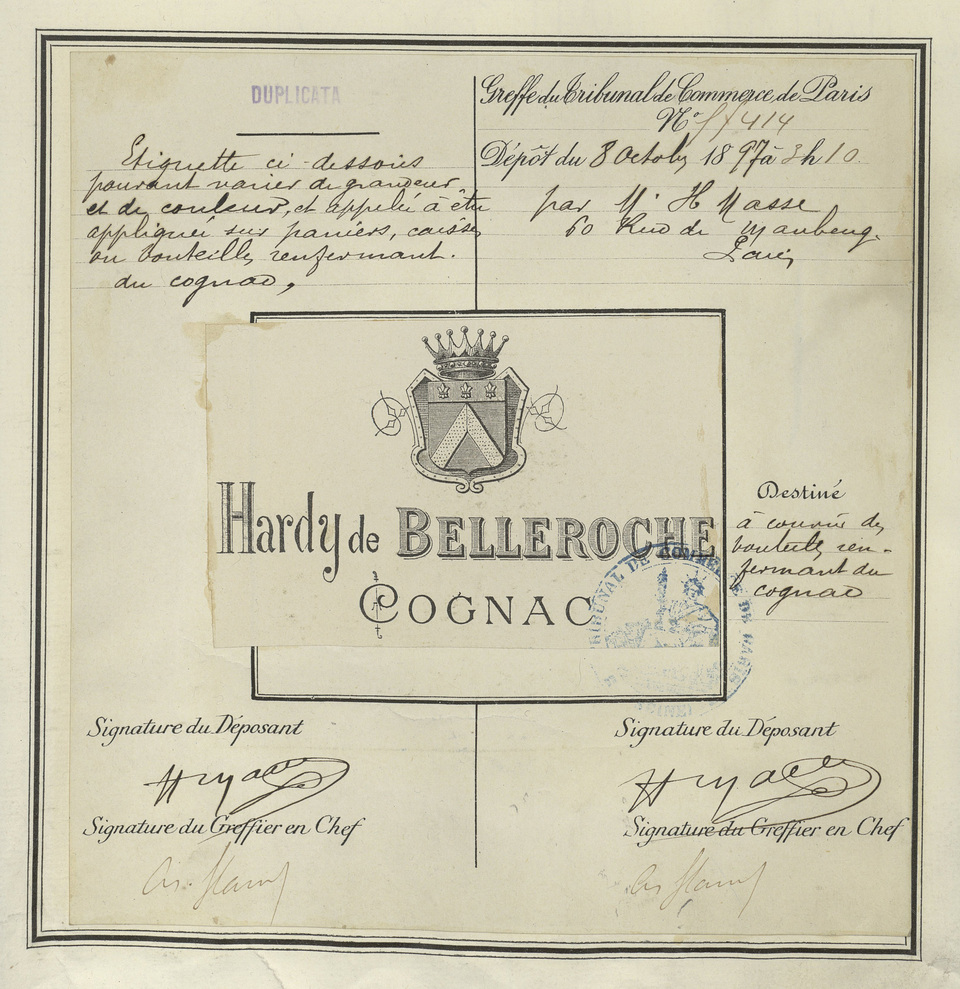 DUPLICATA
Etiquette ci-dessous
pouvant varier de grandeur
et de couleur, et appelée à être
appliquée sur paniers, caisses
ou bouteilles renfermant
du cognac,
Greffe du Tribunal de Commerce de Paris
N° 414
Dépôt du 8 Octobre 1897 à 3h10
par M. H Masse
60 Rue de Maubeuge
Paris
Hardy de BELLEROCHE
COGNAC
TRIBUNAL DE COMMERCE DE PARIS
(SEINE)
Destiné
à couvrir des
bouteilles ren-
fermant du
cognac
Signature du Déposant
Signature du Déposant
HMasse
HMasse
Signature du Greffier en Chef
Signature du Greffier en Chef